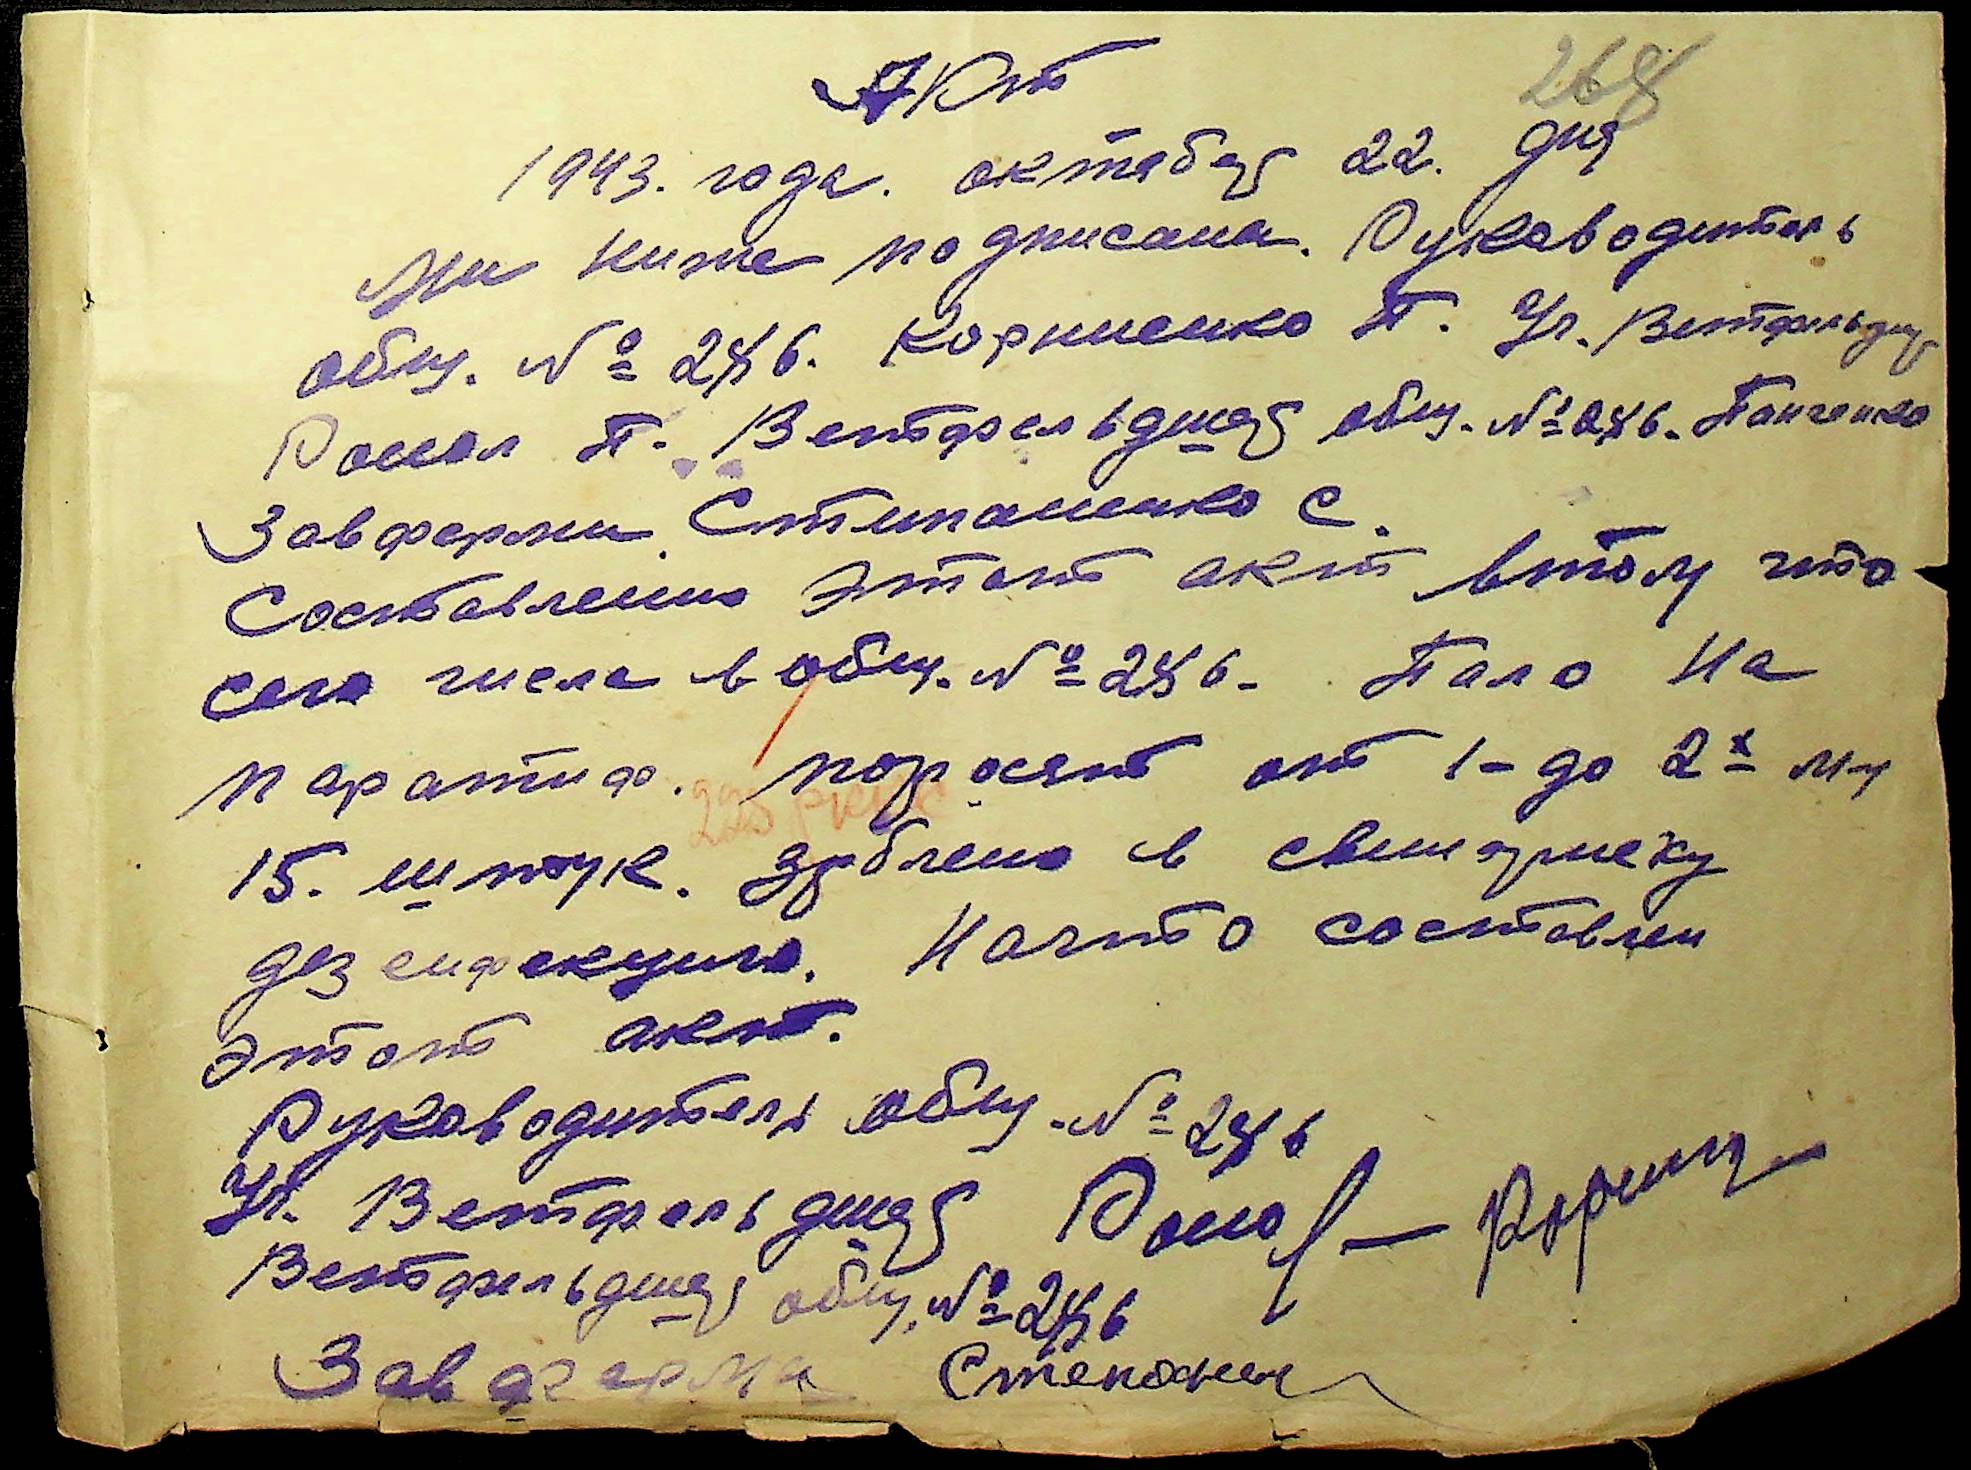 Акт
268
1943. года. октября 22. дня
Ми ниже подписана. Руководитель
общ. № 246. Корниенко П. Уч. Ветфельдшер
Роман П. Ветфельдшер общ. № 246. Панченко
Завферми. Степаненко С.
Составлено этот акт втому что
сего числа в общ. № 246. Пало на
паратиф. поросят от 1- до 2х м-ц
15. штук. зроблено в свинарнеку
дезенфекцию. Начто составлен
этот акт.
Руководитель общ. № 246
Уч. Ветфельдшер
Ветфельдшер общ. № 246
Завферма Степанен